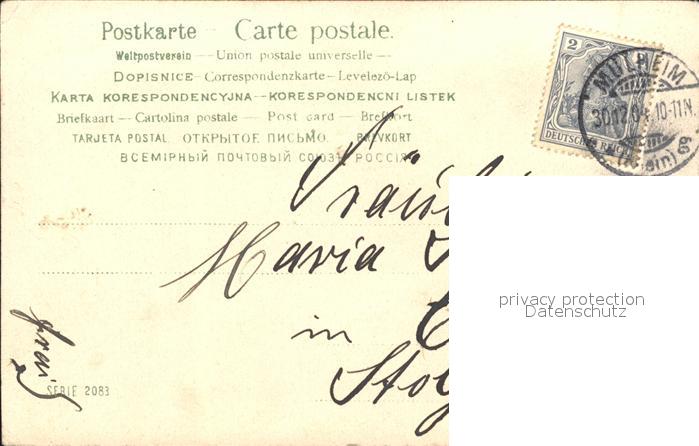 Postkarte — Carte postale.
Weltpostverein — Union postale universelle —
DOPISNICE — Correspondenzkarte — Levelező-Lap
KARTA KORESPONDENCYJNA — KORESPONDENCNI LISTEK
Briefkaart — Cartolina postale — Post card — Brefkort
TARJETA POSTAL ОТКРЫТОЕ ПИСЬМО. BREVKORT
ВСЕМІРНЫЙ ПОЧТОВЫЙ СОЮЗЪ РОССІЯ
2
DEUTSCHES REICH
MÜLHEIM
30.12.04.10-11N.
(Rhein)
Maria
in
SERIE 2083
privacy protection
Datenschutz